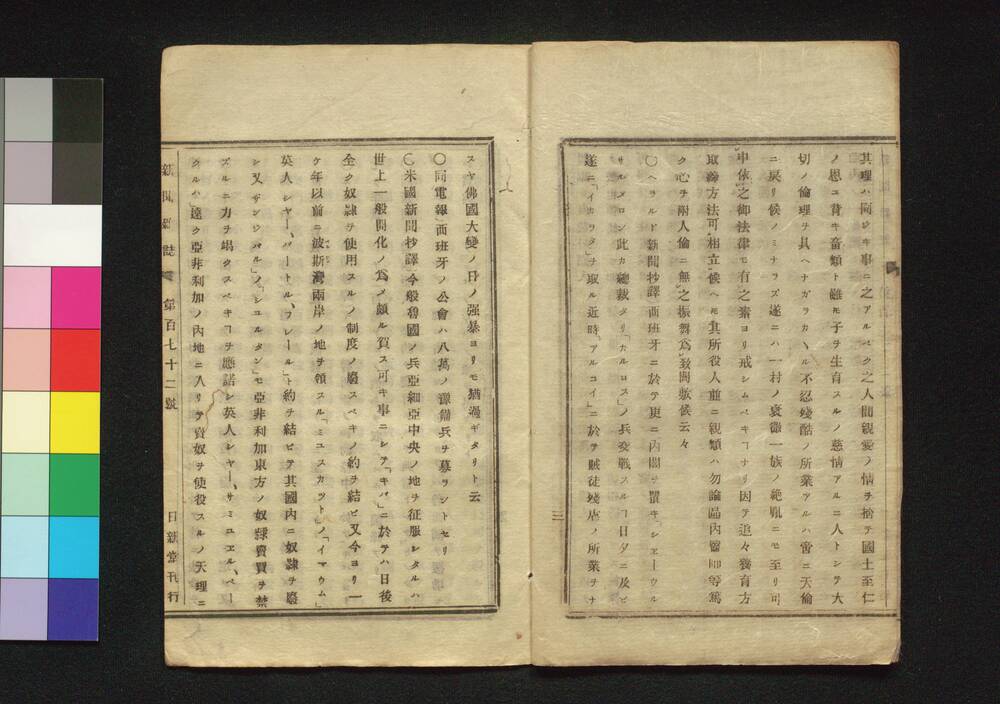 其理ハ間ウキ事ニ之アルベク之人間親愛ノ情ヲ捨テ國土至仁
ノ恩ニ背キ畜類ト雖モ子ヲ生育スルノ慈情アルニ人トシテ大
切ノ倫理ヲ具ヘナガラカヽル不忍殘酷ノ所業アルハ啻ニ天倫
ニ戻リ候ノミナラズ遂ニハ一村ノ衰微一族ノ絶亂ニモ至リ可
申依之御法律モ有之素ヨリ戒シムベキヿナリ因テ追々養育方
取締方法可相立候ヘモ其所役人並ニ親類ハ勿論區內醫師等篤
ク心ヲ附人倫ニ無之振舞爲致間敷候云々
〇ヘラルド新聞抄譯西班牙ニ於テ更ニ內閣ヲ置キ「シヱーウル
サルメロン此カ總裁タリ「カルロス」ノ兵交戰スルヿ日夕ニ及ビ
遂ニ「イカワタ」ヲ取ル近時「アルコイ」ニ於テ賊徒殘虐ノ所業ヲナ
三
スヤ佛國大變ノ日ノ强暴ヨリモ猶過ギタリト云
〇同電報西班牙ノ公會ハ八萬ノ豫備兵ヲ募ラントセリ
〇米國新聞抄譯今般魯國ノ兵亞細亞中央ノ地ヲ征服シタルハ
世上一般開化ノ爲メ頗ル賀ス可キ事ニシテ「キバ」ニ於テハ日後
全ク奴隷ヲ使用スルノ制度ノ廢スベキノ約ヲ結ビ又今ヨリ一
ケ年以前ニ波斯灣兩岸ノ地ヲ領スル「ミユスカツト」ノ「イマウム」
英人シヤー、バートル、フレール」ト約ヲ結ビテ其國內ニ奴隷ヲ廢
シ又ザンジバル」ノ「シユルタン」モ亞非利加東方ノ奴隷賣買ヲ禁
ズルニ力ヲ竭クスベキヿヲ應諾シ英人シヤー、サミユヱル、ベー
クルハ遠ク亞非利加ノ內地ニ入リテ賣奴ヲ使役スルノ天理ニ
新聞雜誌 第百七十二號 日新堂刊行